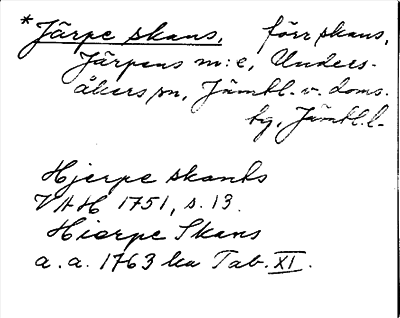 *Järpe skans, förr skans,
Järpens m:e, Unders-
åkers sn, Jämtl. v. doms.
hg, Jämtl. l.
Hjerpe skants
VAH 1751, s. 13.
Hierpe Skans
a. a. 1763 ka Tab. XI.